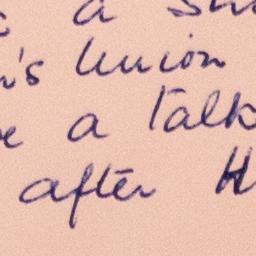 a
's Union
a talk
after H